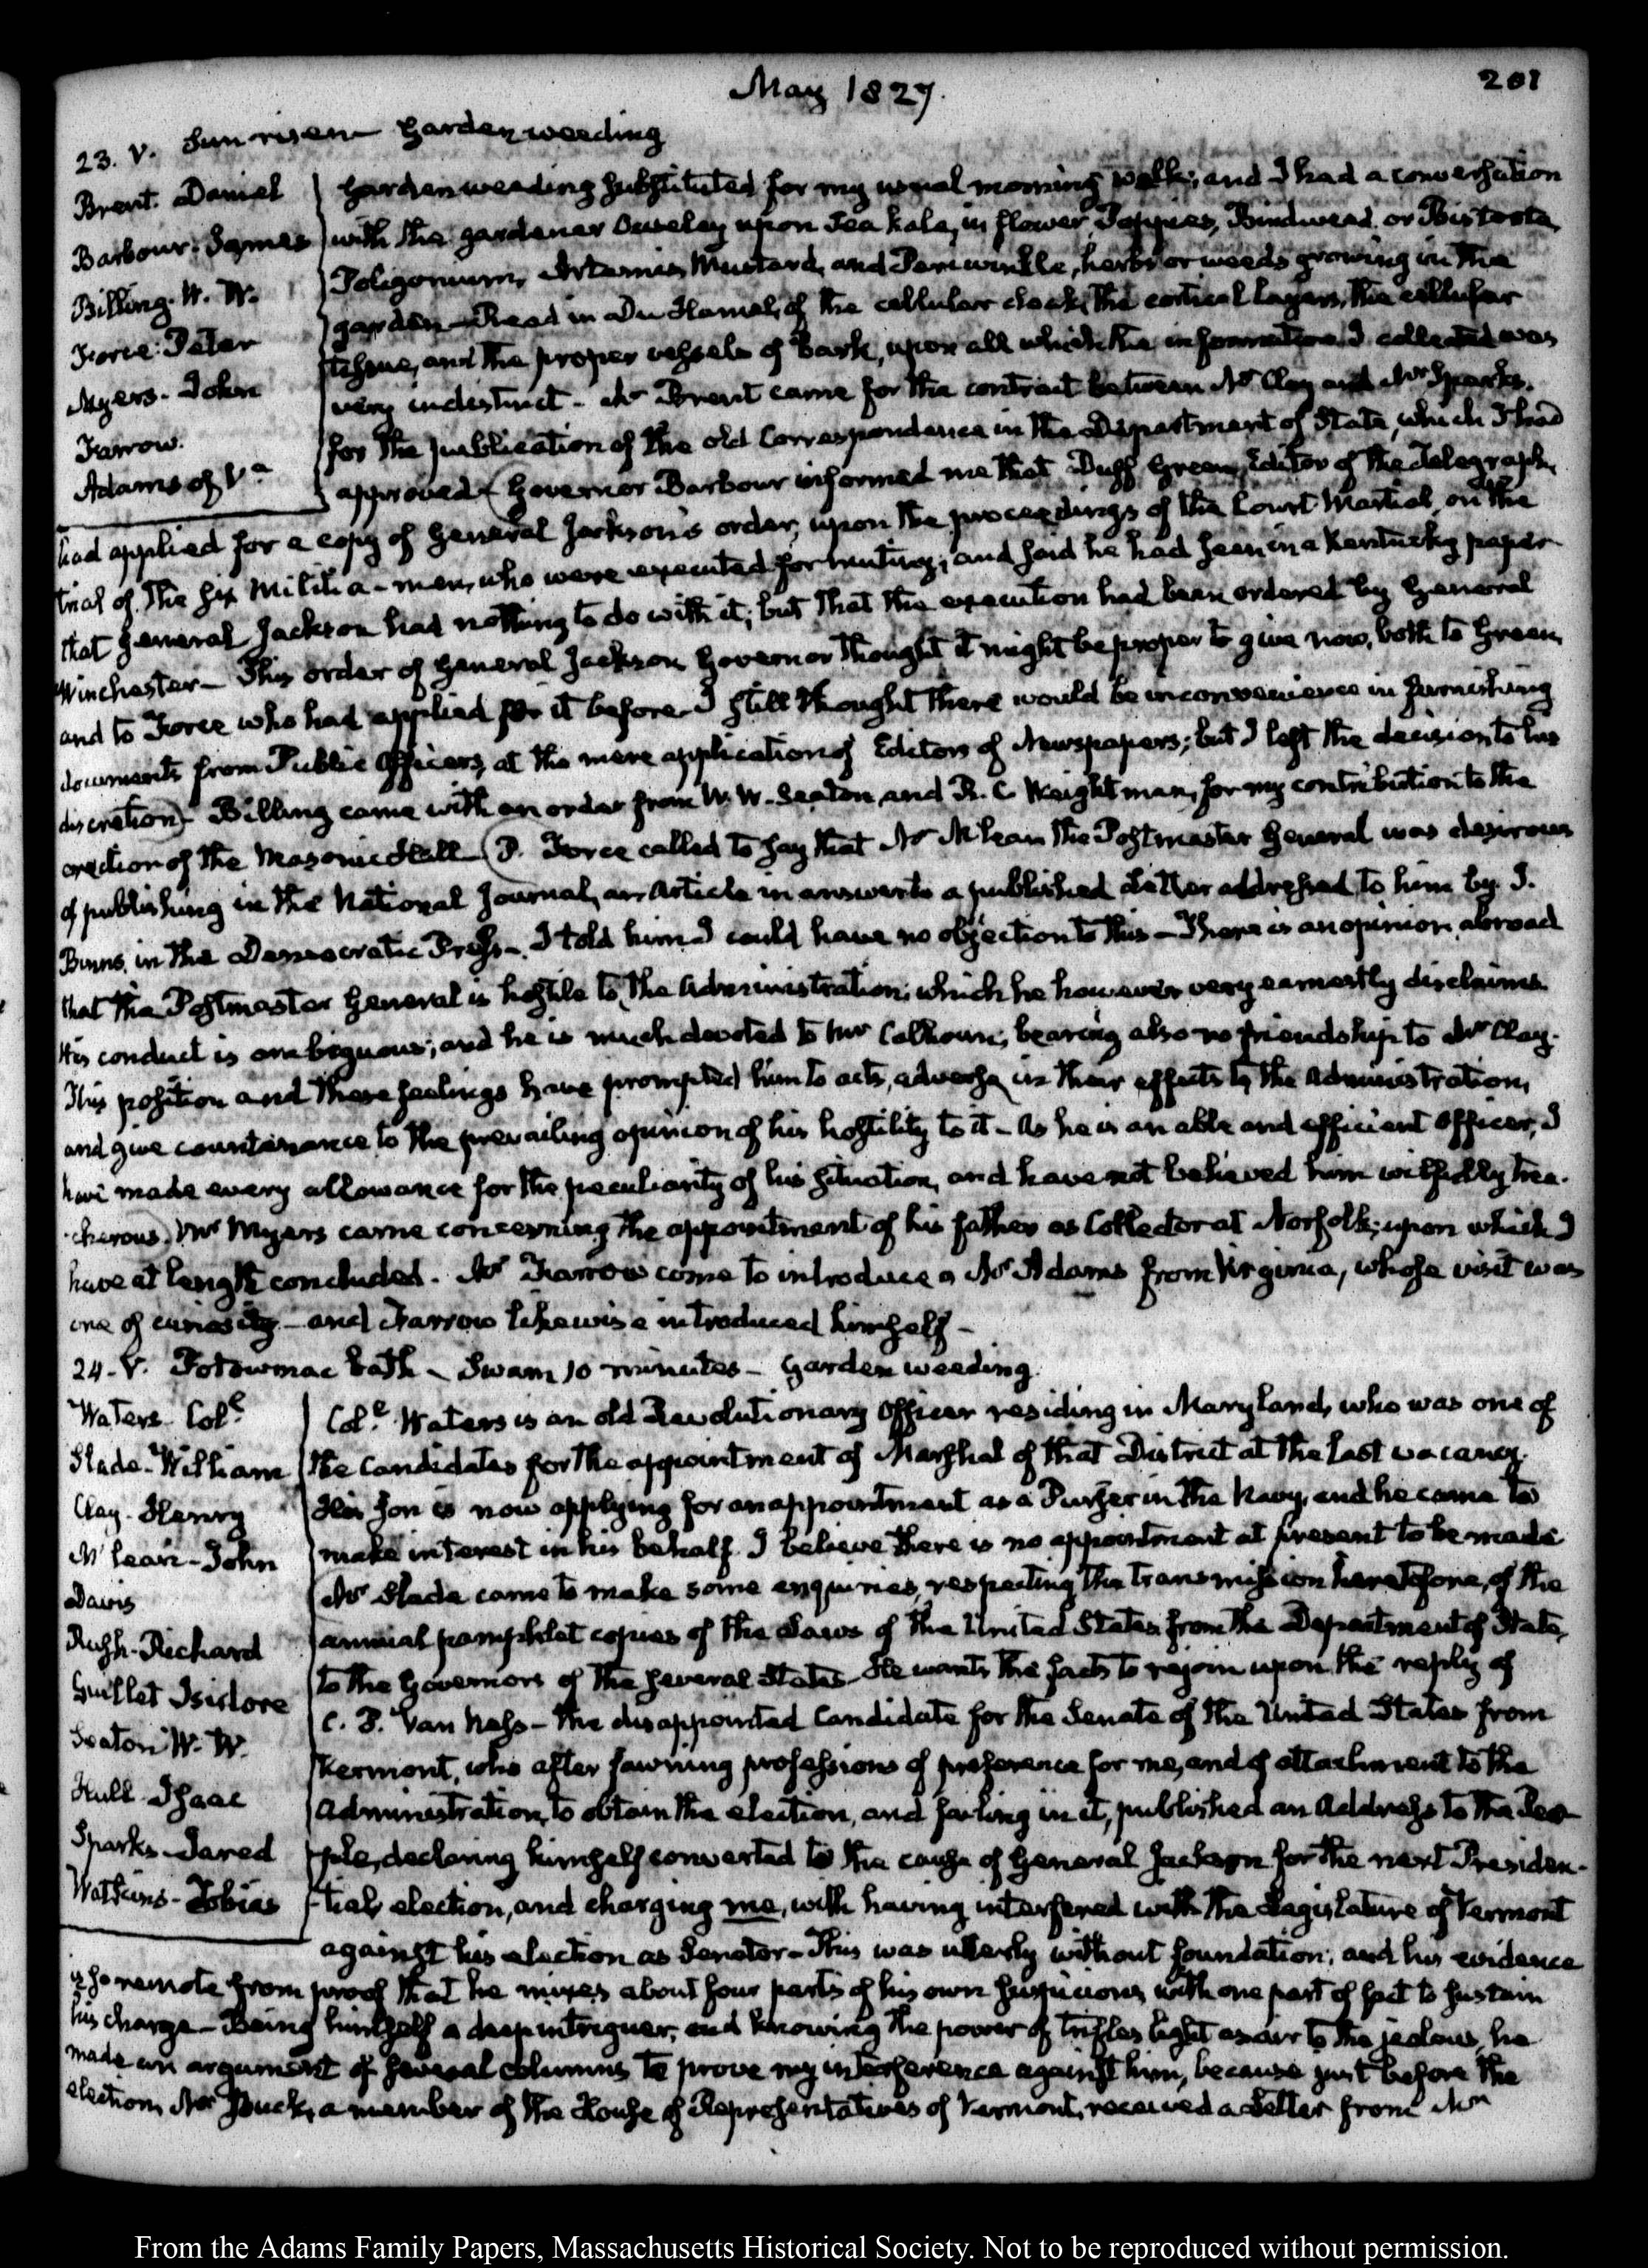 May 1827.
201
23. V. Sun risen Garden weeding
Brent. Daniel
Barbour. James
Billing. W. W.
Force. Peter
Myers. John
Farrow.
Adams of Va
Garden weeding substituted for my usual morning walk; and I had a conversation
with the gardener Ousley upon Sea kale, in flower, Poppies, Bindweed or Bistorta,
Poligonum, Artemis, Mustard, and Periwinkle, herbs or weeds growing in the
garden—Read in Du Hamel, of the cellular the cortical layers, the cellular
tissue, and the proper vessels of bark, upon all which the information I collected was
very indistinct— Mr Brent came for the contract between Mr Clay and Mr Sparks,
for the publication of the old Correspondence in the Department of State, which I had
approved (Governor Barbour informed me that Duff Green, Editor of the Telegraph,
had applied for a copy of General Jackson's order, upon the proceedings of the Court Martial, on the
trial of the six Militia-men, who were executed for mutiny; and said he had seen in a Kentucky paper
that General Jackson had nothing to do with it; but that the execution had been ordered by General
Winchester—This order of General Jackson Governor thought it might be proper to give now, both to Green,
and to Force who had applied for it before—I still thought there would be inconvenience in furnishing
documents from Public Officers, at the mere application of Editors of Newspapers; but I left the decision to his
discretion)—Billing came with an order from W. W. Seaton, and R. C. Weightman, for my contribution to the
erection of the Masonic Hall—(P. Force called to say that Mr McLean the Postmaster General was desirous
of publishing in the National Journal, an Article in answer to a published Letter addressed to him by J.
Binns, in the Democratic Press—I told him I could have no objection to this—There is an opinion abroad
that the Postmaster General is hostile to the Administration; which he however very earnestly disclaims.
His conduct is ambiguous; and he is much devoted to Mr Calhoun; bearing also no friendship to Mr Clay.
This position and these feelings have prompted him to acts, adverse in their effects to the Administration,
and give countenance to the prevailing opinion of his hostility to it—As he is an able and efficient Officer, I
have made every allowance for the peculiarity of his situation, and have not believed him wilfully trea-
-cherous) Mr Myers came concerning the appointment of his father as Collector at Norfolk; upon which I
have at length concluded. Mr Farrow came to introduce a Mr Adams from Virginia, whose visit was
one of curiosity—and Farrow likewise introduced himself—
24. V. Potowmac bath—Swam 10 minutes—Garden weeding.
Waters. Coll
Slade. William
Clay. Henry
McLean—John
Davis
Rush. Richard
Guillet Isidore
Seaton W. W.
Hull Isaac
Sparks Jared
Watkins—Tobias
Coll Waters is an old Revolutionary Officer residing in Maryland, who was one of
the Candidates for the appointment of Marshal of that District at the last vacancy.
His son is now applying for an appointment as a Purser in the Navy, and he came to
make interest in his behalf. I believe there is no appointment at present to be made
Mr Slade came to make some enquiries, respecting the transmission heretofore, of the
annual pamphlet copies of the Laws of the United States from the Department of State,
to the Governors of the several States—He wants the facts to rejoin upon the reply of
C. P. Van Ness—the disappointed Candidate for the Senate of the United States from
Vermont, who after fawning professions of preference for me, and of attachment to the
Administration, to obtain the election, and failing in it, published an Address to the Peo-
-ple, declaring himself converted to the cause of General Jackson for the next Presiden-
-tial election, and charging me, with having interfered with the Legislature of Vermont
against his election as Senator—This was utterly without foundation; and his evidence
is so remote from proof that he mixes about four parts of his own suspicions with one part of fact to sustain
his charge—Being himself a deep intriguer, and knowing the power of trifles light as air to the jealous, he
made an argument of several columns to prove my interference against him, because just before the
election, Mr Buck, a member of the House of Representatives of Vermont, received a Letter from Mr
From the Adams Family Papers, Massachusetts Historical Society. Not to be reproduced without permission.